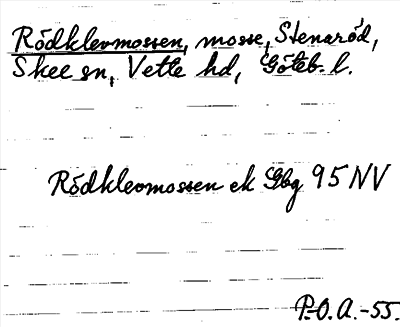 Rödklevmossen, mosse, Stenaröd,
Skee sn, Vette hd, Göteb. l.
Rödklevmossen ek Gbg 95 NV
P.O.A.-55.